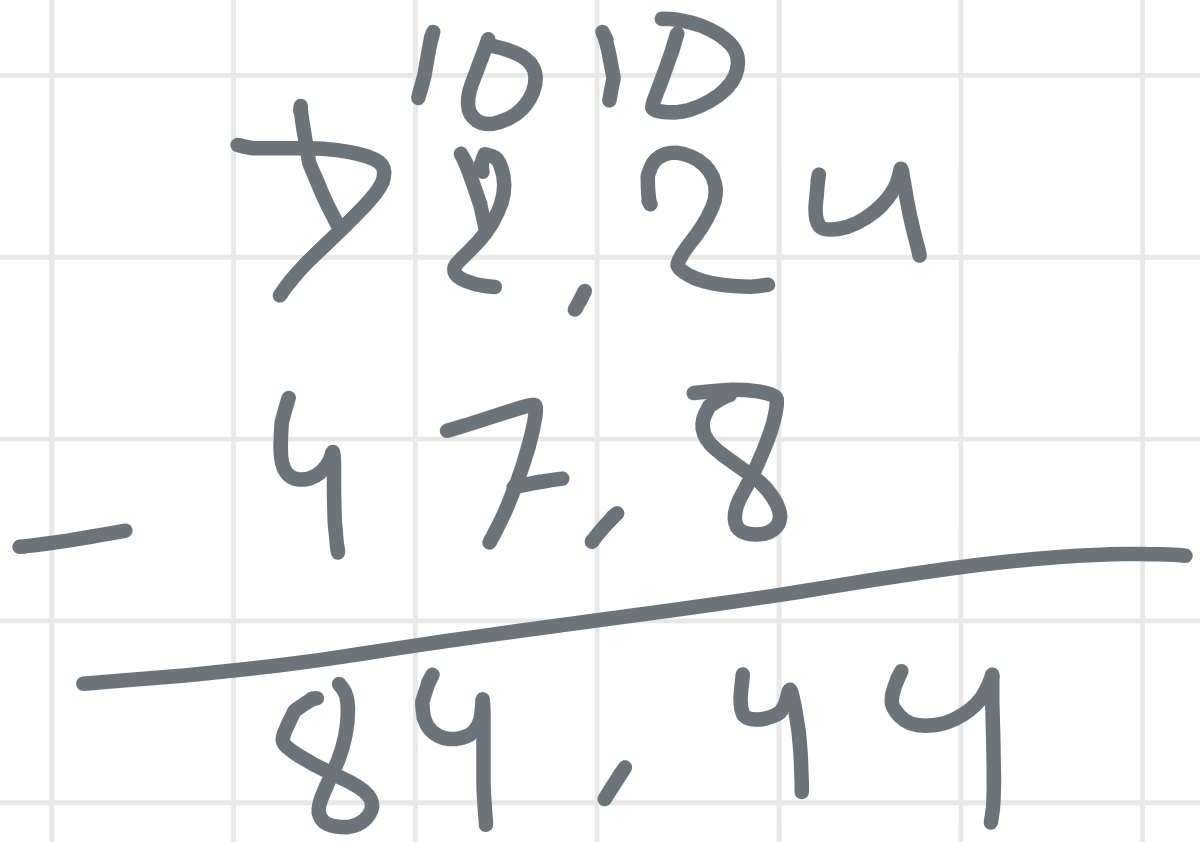 10 10
72,24
47,8
-
84,44